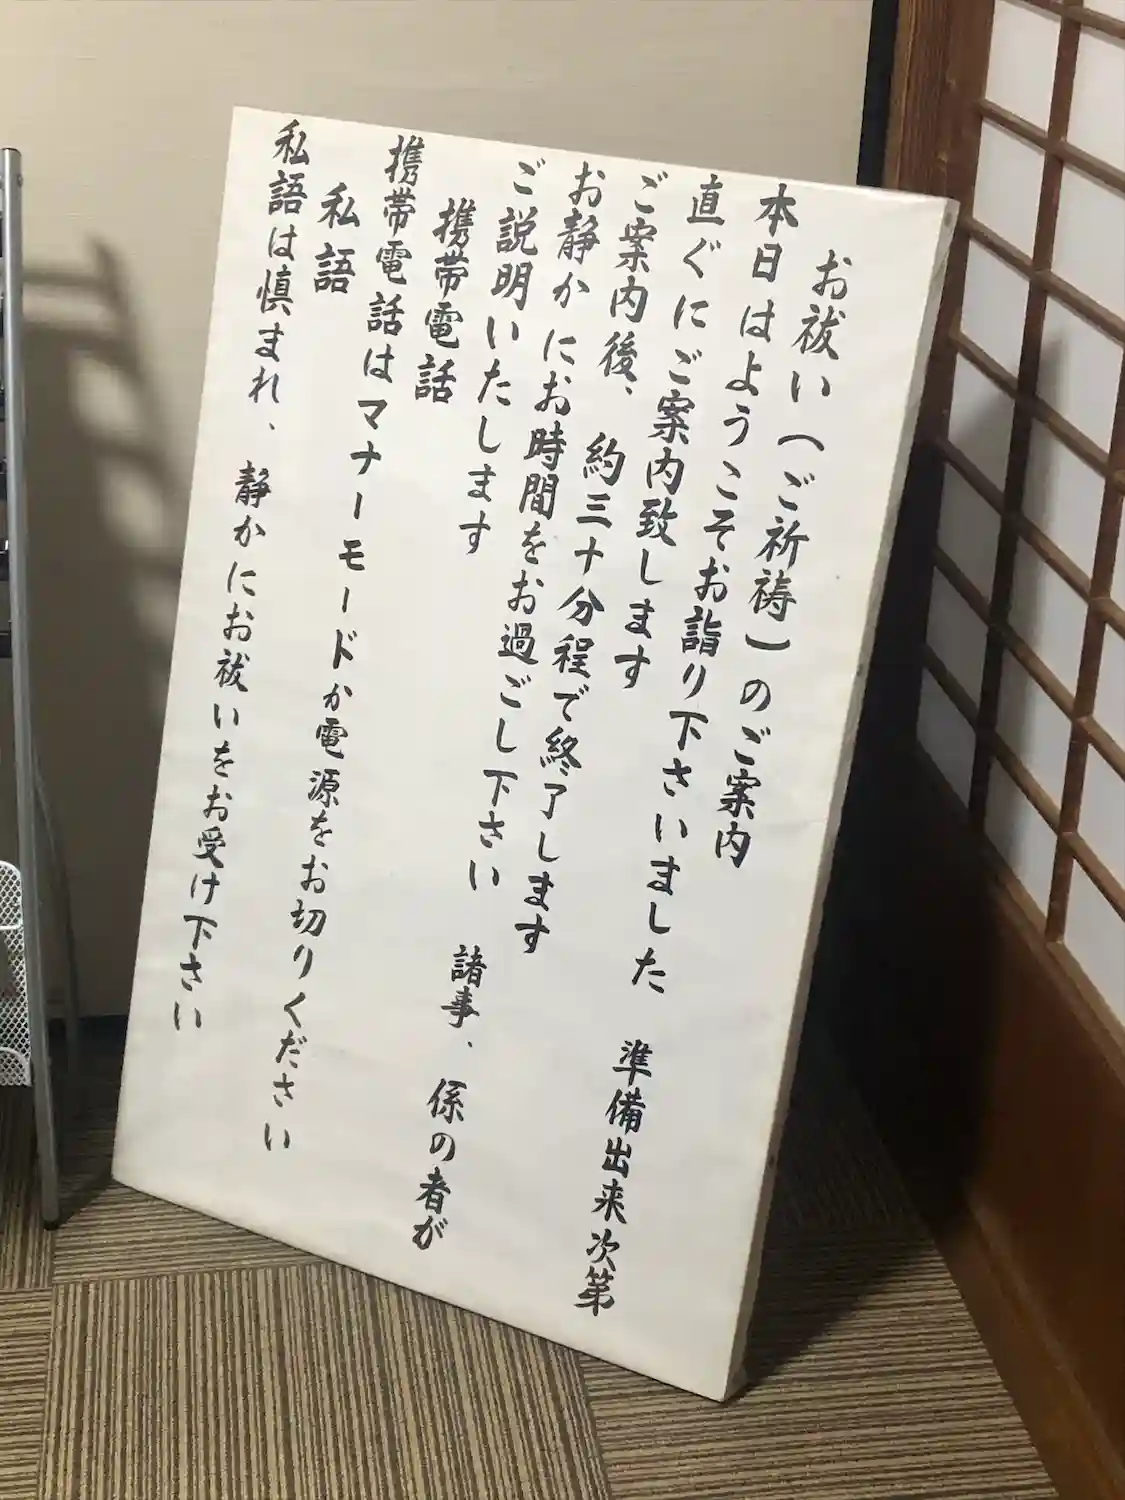 お祓い(ご祈祷)のご案内
本日はようこそお詣り下さいました　準備出来次第
直ぐにご案内致します
ご案内後、約三十分程で終了します
お静かにお時間をお過ごし下さい　諸事、係の者が
ご説明いたします
携帯電話
携帯電話はマナーモードか電源をお切りください
私語
私語は慎まれ、静かにお祓いをお受け下さい